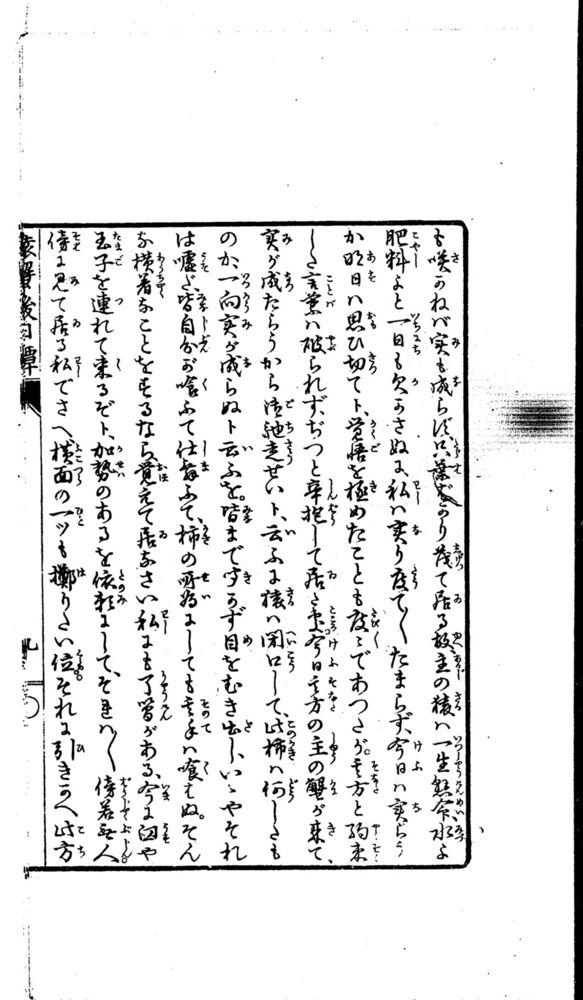 も咲かねバ実も成らず、只葉ばかり茂て居る故、主の猿ハ一生懸命、水よ
肥料よと一日も欠かさぬに、私ハ実り度て〱たまらず、今日ハ実らう
か明日ハ思ひ切てト、覚悟を極めたことも度々であつたが、其方と約束
した言葉ハ破られず、ぢつと辛抱して居た処、今日其方の主の蟹が来て、
実が成たらうから御馳走せいト、云ふに猿ハ閉口して、此柿ハ何したも
のか、一向実が成らぬト云ふを。皆まで聞かず目をむき出し、いゝやそれ
は嘘だ、皆自分が喰ふて仕舞ふて、柿の所為にしても其手ハ喰はぬ。そん
な横着なことをするなら、覚えて居なさい私にも了簡がある、今に臼や
玉子を連れて来るぞト、加勢のあるを依頼にして、それハ〱傍若無人
傍に見て居る私でさへ、横面の一ツも擲りたい位、それに引きかへ此方
猿蟹後日譚
九